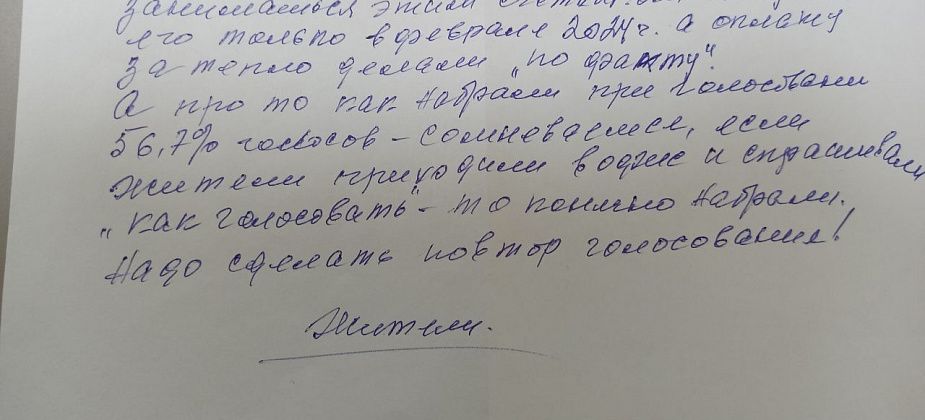 заниматься этим
его только в феврале 2024г. а оплату
за тепло делали „по факту".
А про то как набрали при голосовани
56,7% голосов – сомневаемся, если
жители приходили в оджс и спрашивали
„как голосовать" – то конечно набрали.
Надо сделать повтор голосования!
Жители.